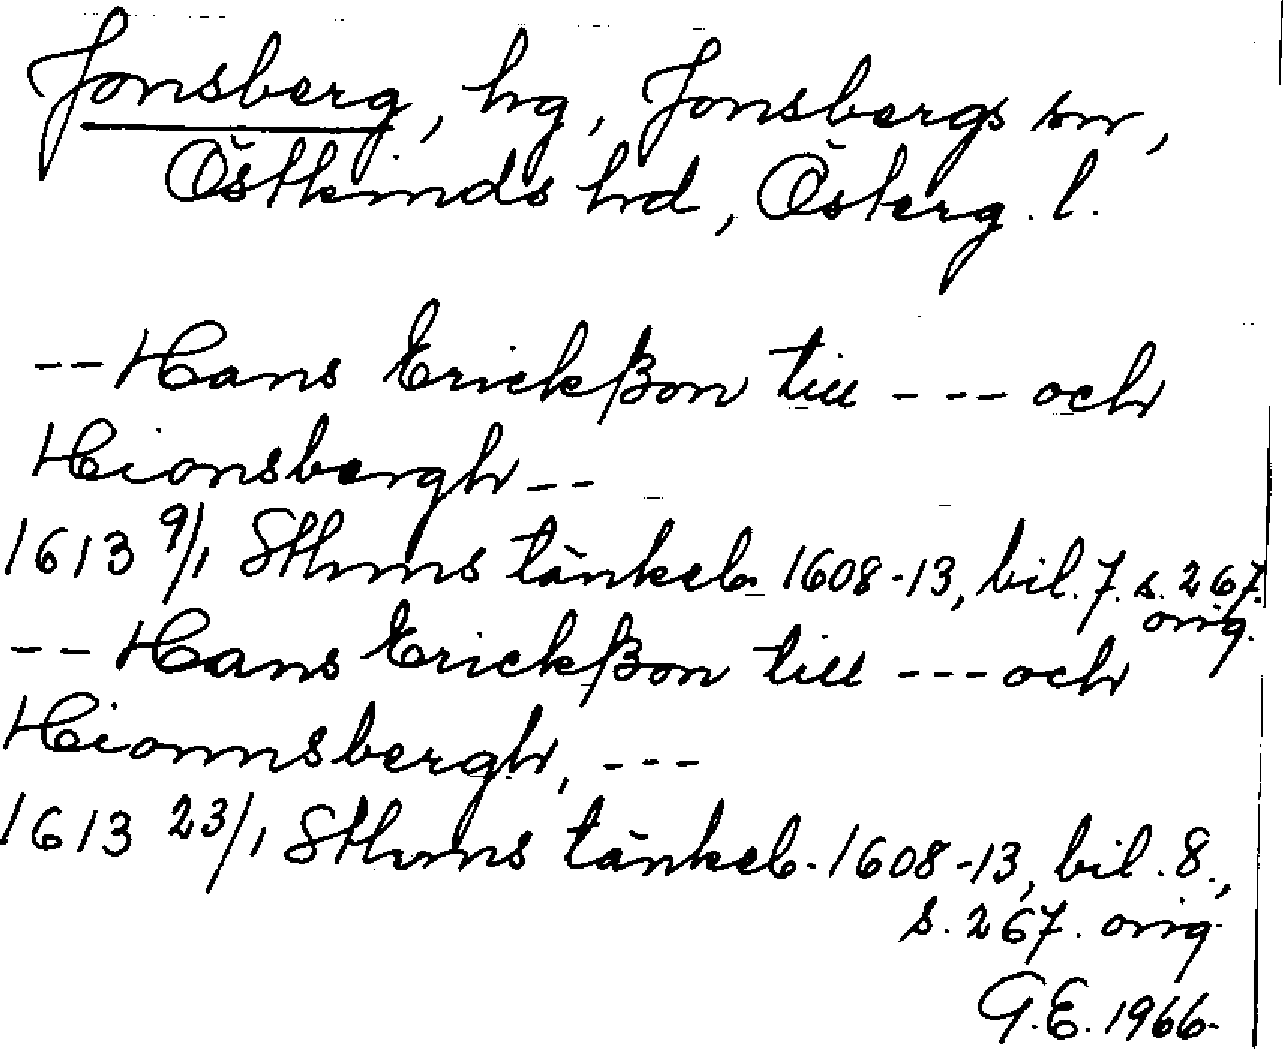 Jonsberg, hg, Jonsbergs sn,
Östkinds hd, Österg. l.
-- Hans Erickßon till --- och
Hionsbergh --
1613 9/1 Sthms tänkeb. 1608-13, bil. 7. s. 267.
orig.
-- Hans Erickßon till --- och
Hionnsbergh, ---
1613 23/1 Sthms tänkeb. 1608-13, bil. 8.,
s. 267. orig.
G.E. 1966.